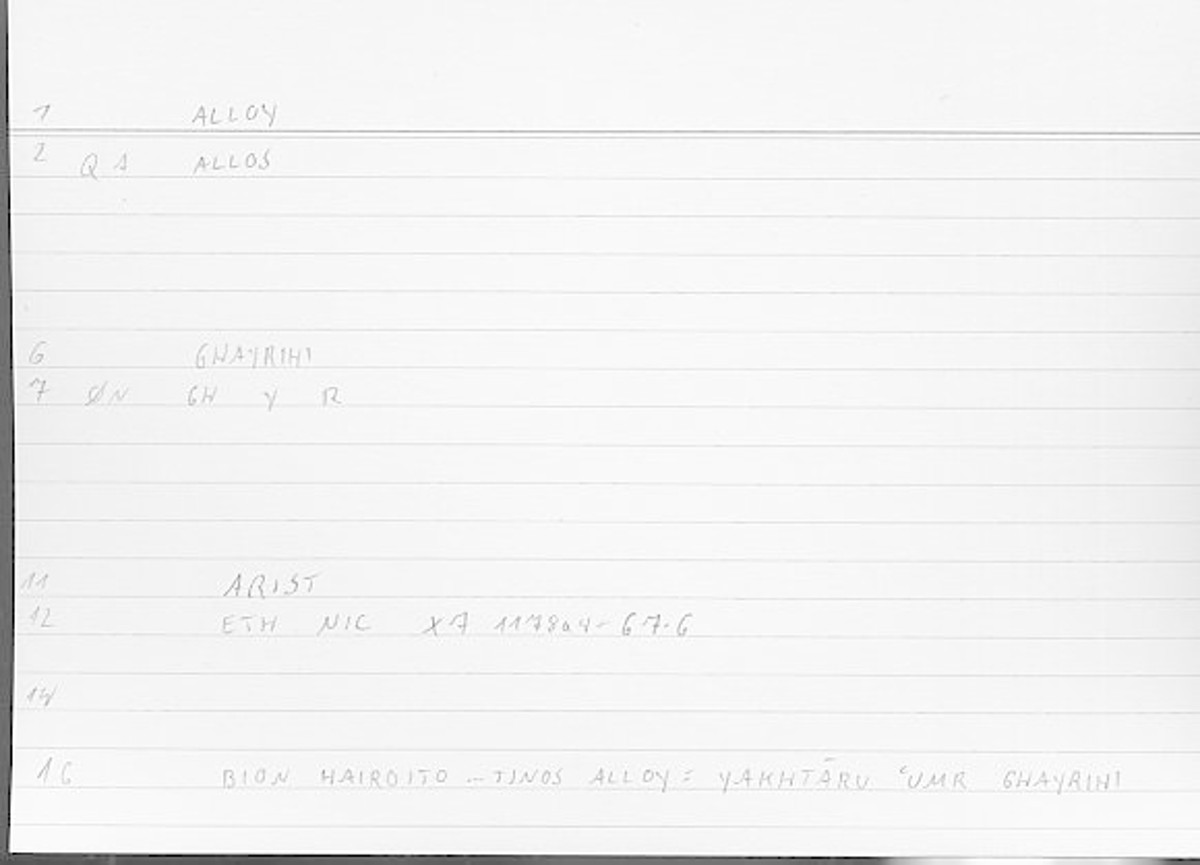 1 ALLOY
2 Q A ALLOS
6 GHAYRIHI
7 ØN GH Y R
11 ARIST
12 ETH NIC X7 1178a4-67.6
14
16 BION HAIROITO --TINOS ALLOY = YAKHTĀRU ʿUMR GHAYRIHI